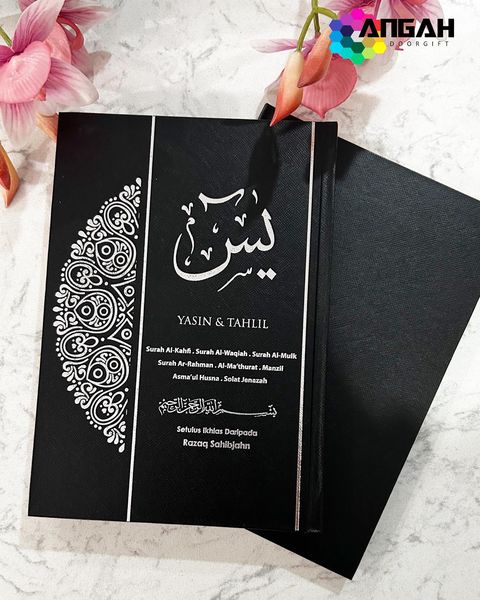 ANGAH
DOORGIFT
يس
YASIN & TAHLIL
Surah Al-Kahfi . Surah Al-Waqiah . Surah Al-Mulk
Surah Ar-Rahman . Al-Ma'thurat . Manzil
Asma'ul Husna . Solat Jenazah
بسم الله الرحمن الرحيم
Setulus Ikhlas Daripada
Razaq Sahibjahn